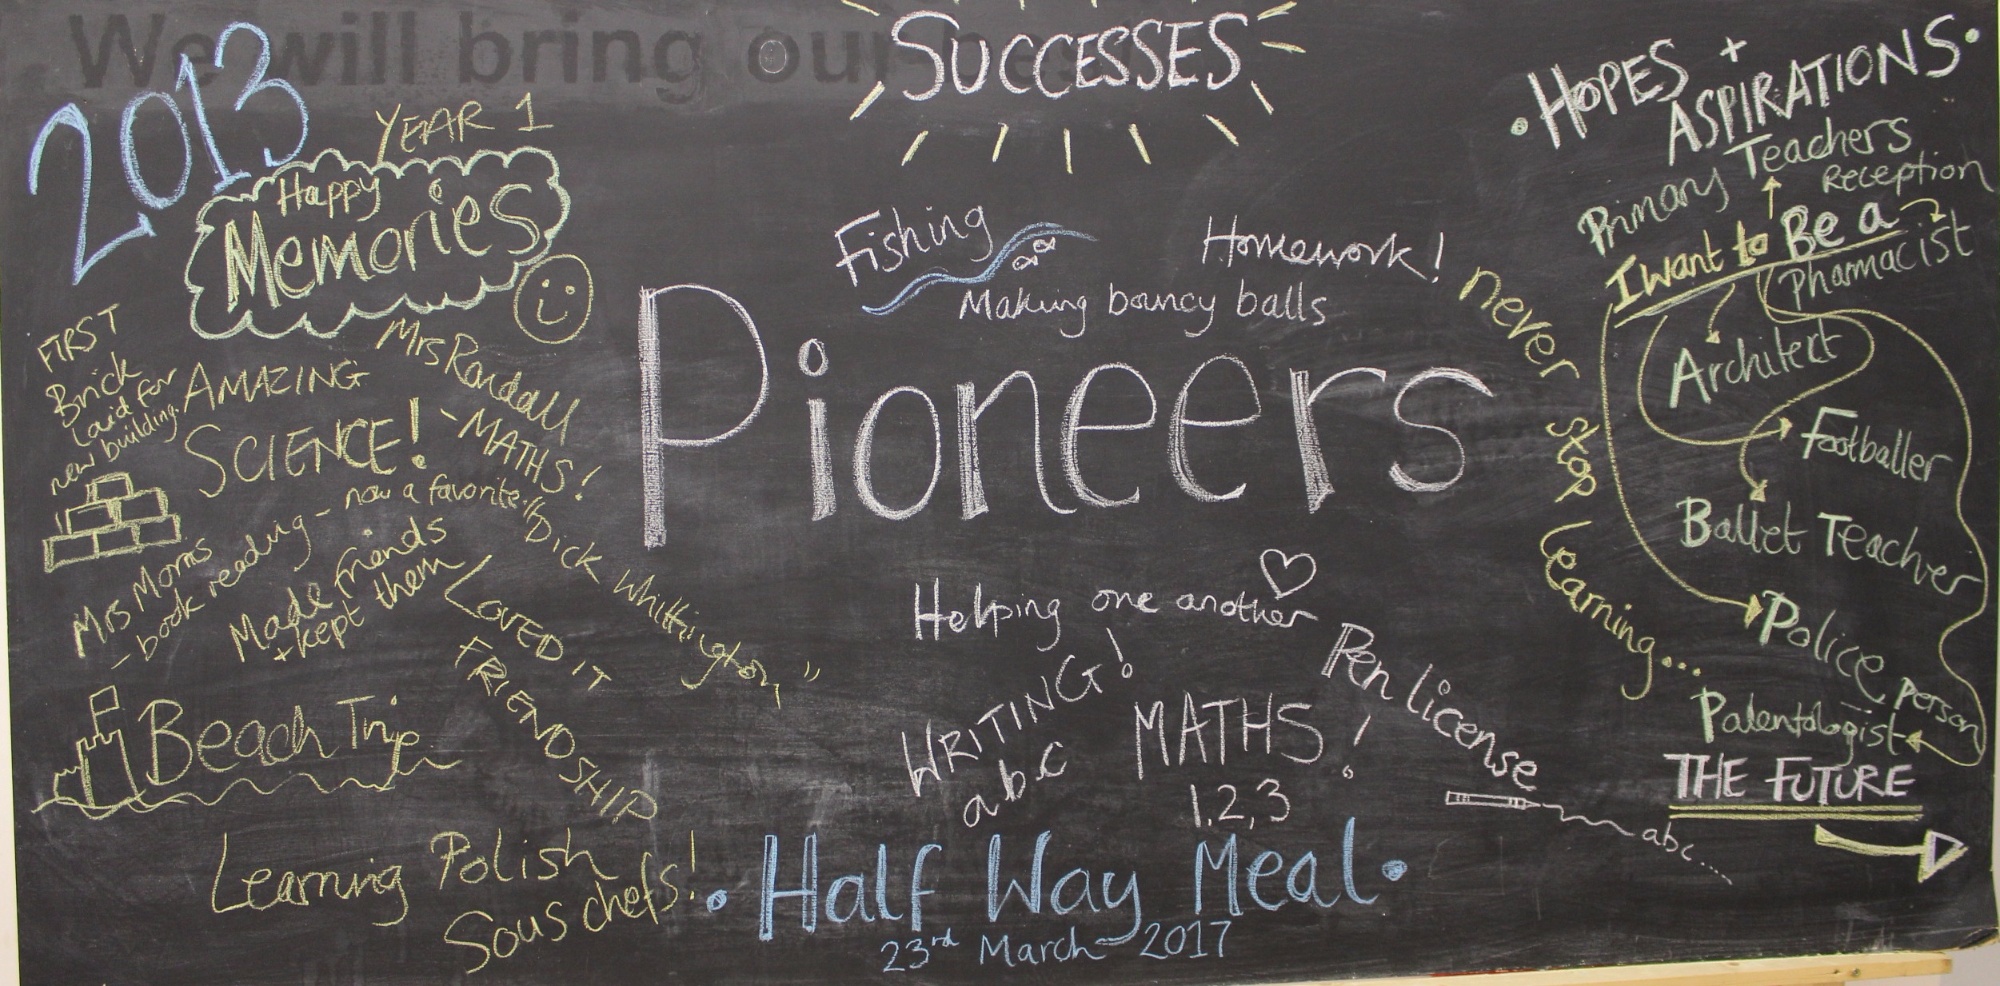 We will bring our best
2013
YEAR 1
Happy
Memories
FIRST
Brick
laid for
new building.
AMAZING
SCIENCE!
Mrs Randall
- MATHS!
Mrs Morris
- book reading - now a favorite.
Made friends
+ kept them
"Dick Whittington"
LOVED IT
FRIENDSHIP
Beach Trip
Learning Polish
Sous chefs!
SUCCESSES
Fishing
Homework!
Making bouncy balls
Pioneers
Helping one another
WRITING!
abc
MATHS!
1,2,3
Pen license
abc...
• Half Way Meal •
23rd March 2017
never stop learning...
• HOPES +
ASPIRATIONS •
Primary Teachers
Reception
I want to Be a
Pharmacist
Architect
Footballer
Ballet Teacher
Police person
Palentologist
THE FUTURE